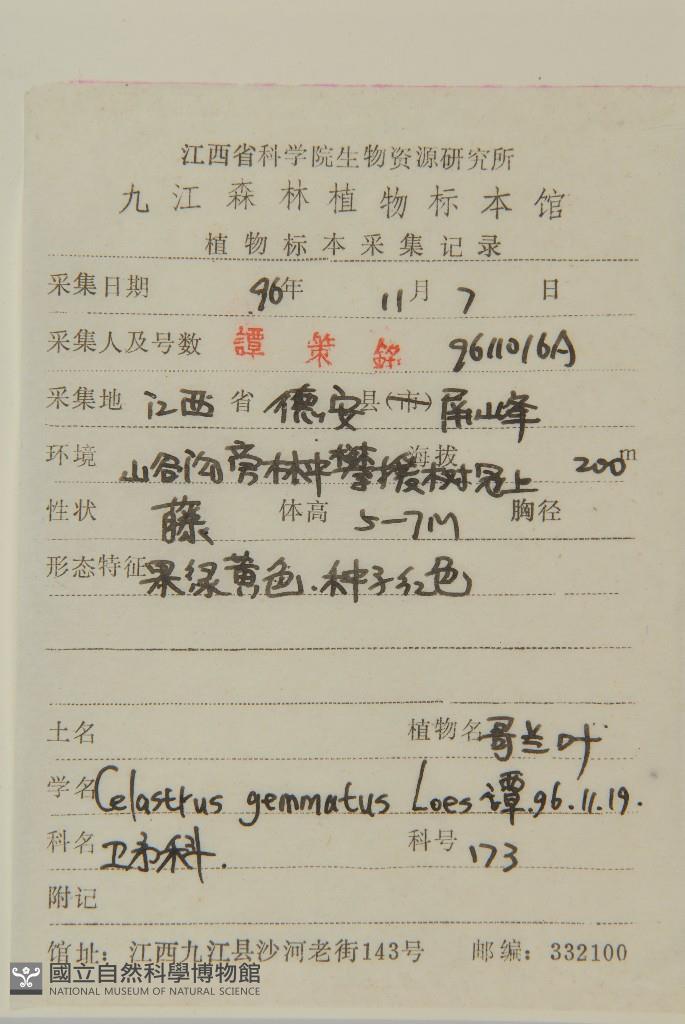 江西省科学院生物资源研究所
九江森林植物标本馆
植物标本采集记录
采集日期 96年 11月 7 日
采集人及号数 譚策銘 9611016A
采集地 江西 省 德安 县(市) 屏山峰
环境 山谷沟旁林中攀援树冠上 海拔 200m
性状 藤 体高 5-7M 胸径
形态特征 果绿黄色.种子红色
土名 植物名 哥兰叶
学名 Celastrus gemmatus Loes 谭.96.11.19.
科名 卫矛科. 科号 173
附记
馆址：江西九江县沙河老街143号 邮编：332100
國立自然科學博物館
NATIONAL MUSEUM OF NATURAL SCIENCE